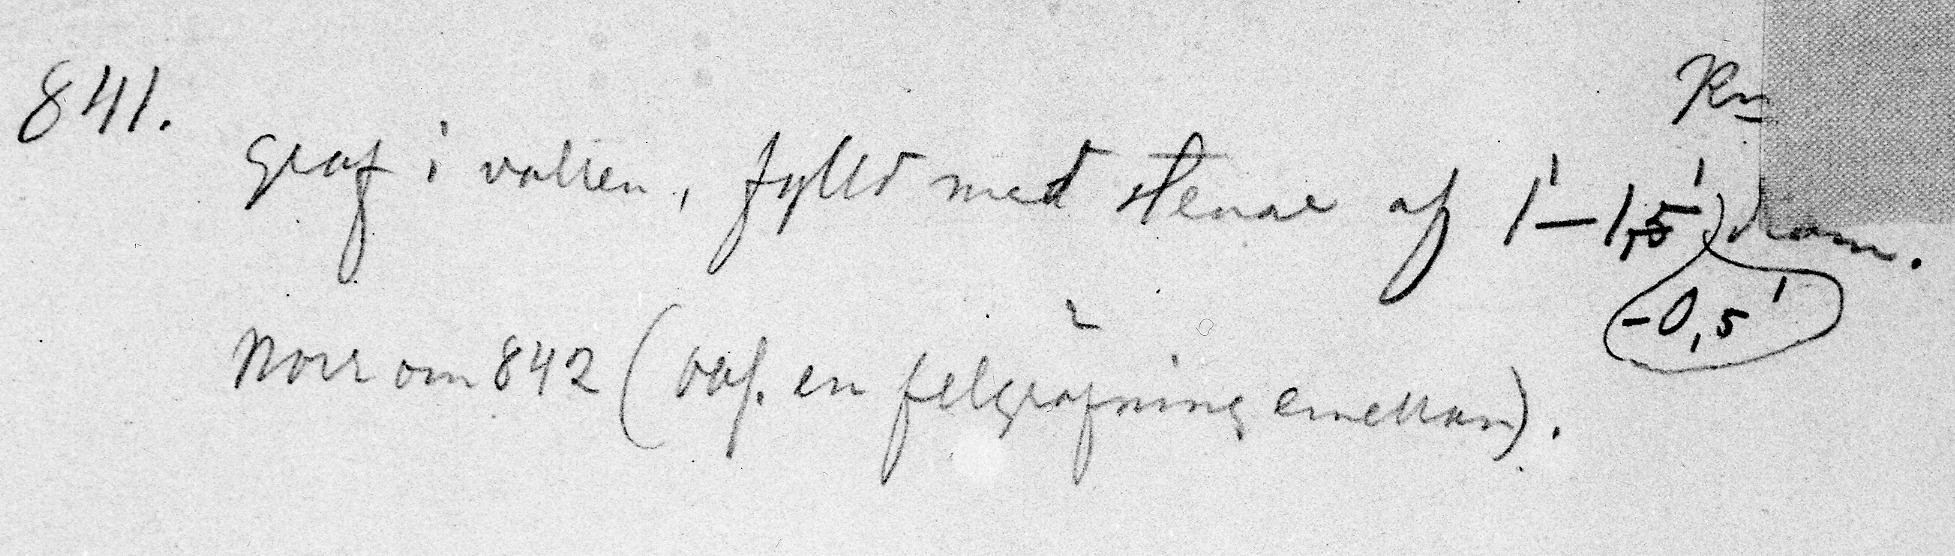 841.
Rn
Graf i vallen, fylld med stenar af 1'–1,5' diam.
-0,5'
Norr om 842 (obs. en felgräfning emellan).